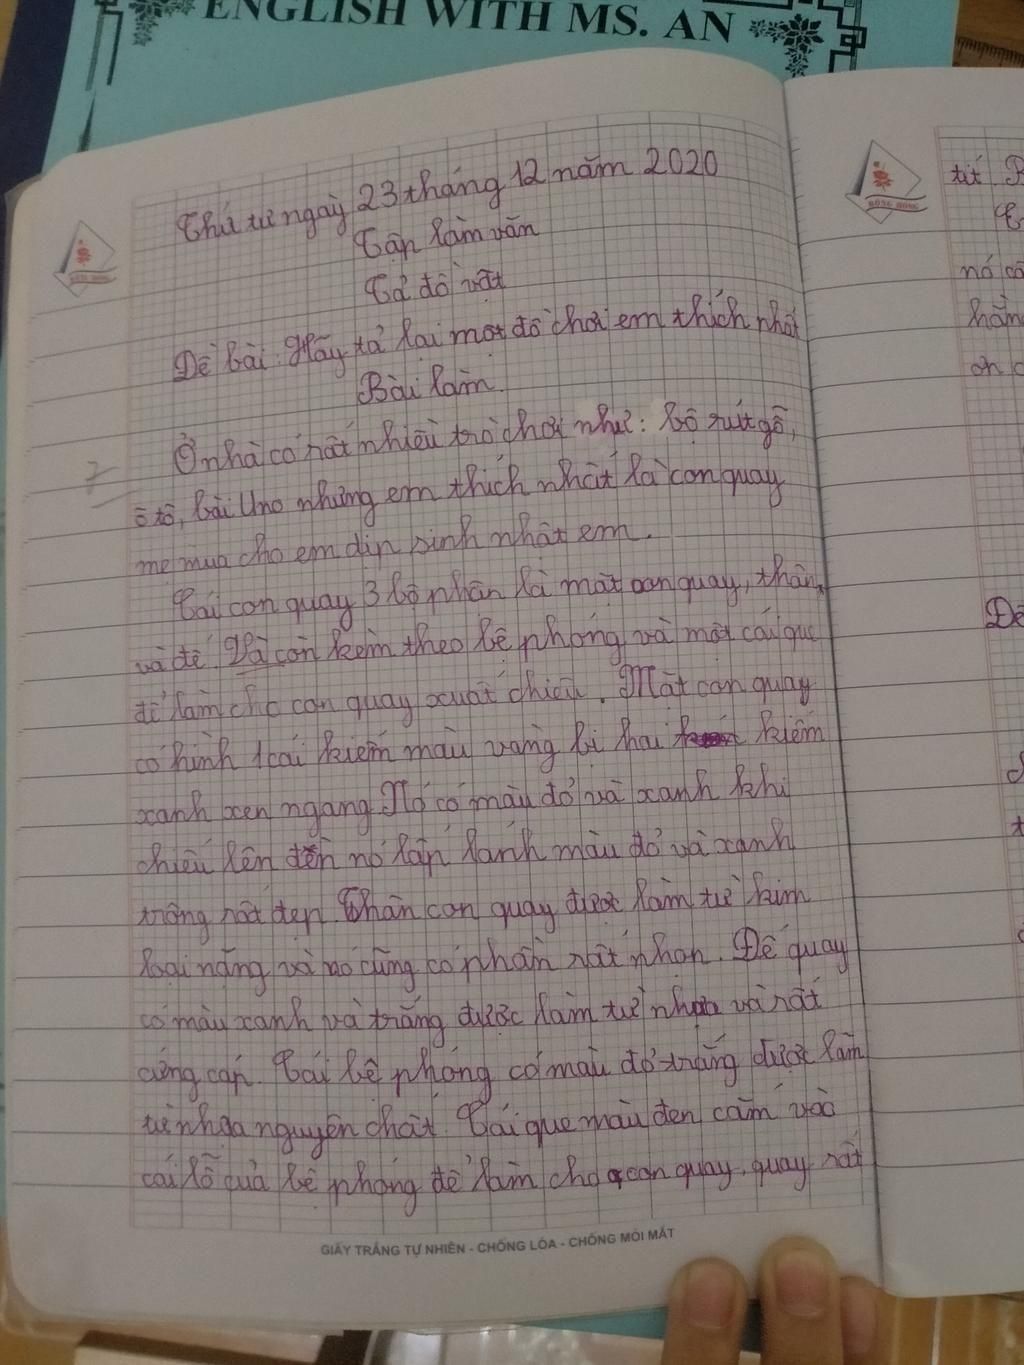 ENGLISH WITH MS. AN
Thứ tư ngày 23 tháng 12 năm 2020
Tập làm văn
Tả đồ vật
Đề bài: Hãy tả lại một đồ chơi em thích nhất
Bài làm.
Ở nhà có rất nhiều trò chơi như: bộ rút gỗ,
ô tô, bài Uno nhưng em thích nhất là con quay
mẹ mua cho em dịp sinh nhật em.
Cái con quay 3 bộ phận là mặt con quay, thân,
và đế. Và còn kèm theo bệ phóng và một cái que
để làm cho con quay xuất chiêu. Mặt con quay
có hình 1 cái kiếm màu vàng bị hai kiếm
xanh xen ngang. Nó có màu đỏ và xanh khi
chiếu lên đèn nó lấp lánh màu đỏ và xanh
trông rất đẹp. Thân con quay được làm từ kim
loại nặng và nó cũng có phần rất nhọn. Đế quay
có màu xanh và trắng được làm từ nhựa và rất
cứng cáp. Cái bệ phóng có màu đỏ trắng được làm
từ nhựa nguyên chất. Cái que màu đen cắm vào
cái lỗ của bệ phóng để làm cho con quay, quay rất
GIẤY TRẮNG TỰ NHIÊN - CHỐNG LÓA - CHỐNG MỎI MẮT
nó có
Đề